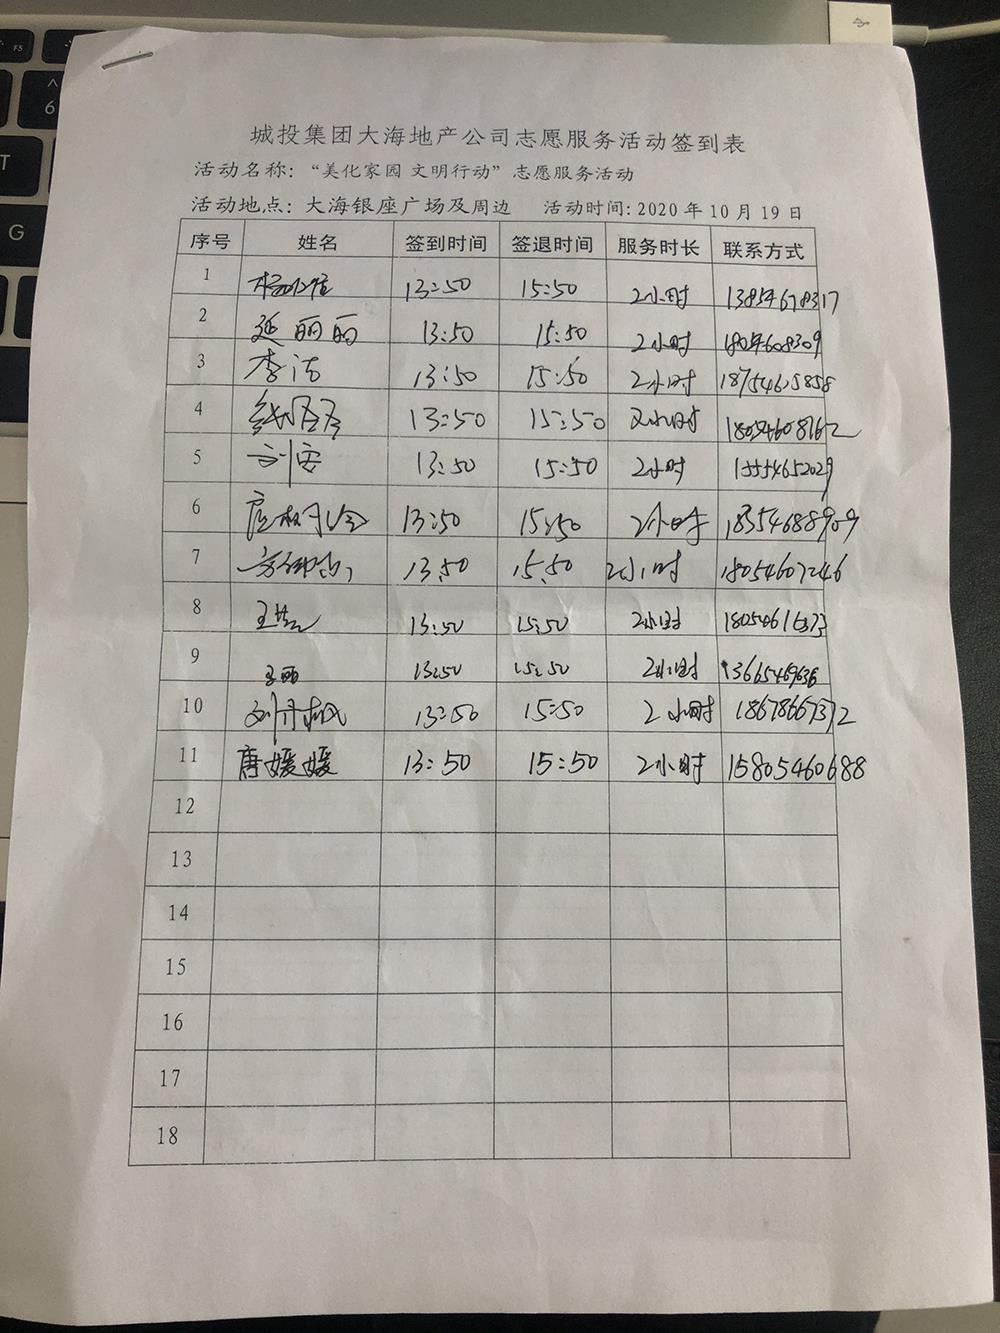 城投集团大海地产公司志愿服务活动签到表
活动名称：“美化家园 文明行动”志愿服务活动
活动地点：大海银座广场及周边 活动时间: 2020 年 10 月 19 日
序号 姓名 签到时间 签退时间 服务时长 联系方式
1 13:50 15:50 2小时 13854678317
2 延丽丽 13:50 15:50 2小时
3 李洁 13:50 15:50 2小时 18754615858
4 13:50 15:50 2小时 18054608162
5 13:50 15:50 2小时 15554652029
6 13:50 15:50 2小时 18354688909
7 13:50 15:50 2小时 18054607246
8 13:50 15:50 2小时
9 13:50 15:50 2小时
10 刘丹枫 13:50 15:50 2小时 18678667372
11 唐媛媛 13:50 15:50 2小时 15805460688
12
13
14
15
16
17
18